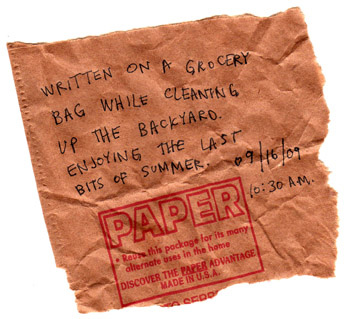 WRITTEN ON A GROCERY
BAG WHILE CLEANING
UP THE BACKYARD.
ENJOYING THE LAST
BITS OF SUMMER. 09/16/09
10:30 A.M.
PAPER
• Reuse this package for its many
alternate uses in the home
DISCOVER THE PAPER ADVANTAGE
MADE IN U.S.A.